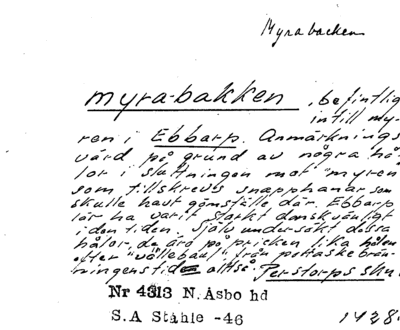 Myrabacken
myra-bakken, befintlig
intill my-
ren i Ebbarp. Anmärknings
värd på grund av några hå-
lor i sluttningen mot "myren"
som tillskrevs snapphanar som
skulle haft gömställe där. Ebbarp
lär ha varit starkt danskvänligt
i den tiden. Själv undersökt dessa
hålor, de äro på pricken lika hålen
efter "vållebau" från pottaskebrän-
ningenstiden alltså. Perstorps skn
Nr 4313 N. Åsbo hd
S.A Ståhle -46
1428